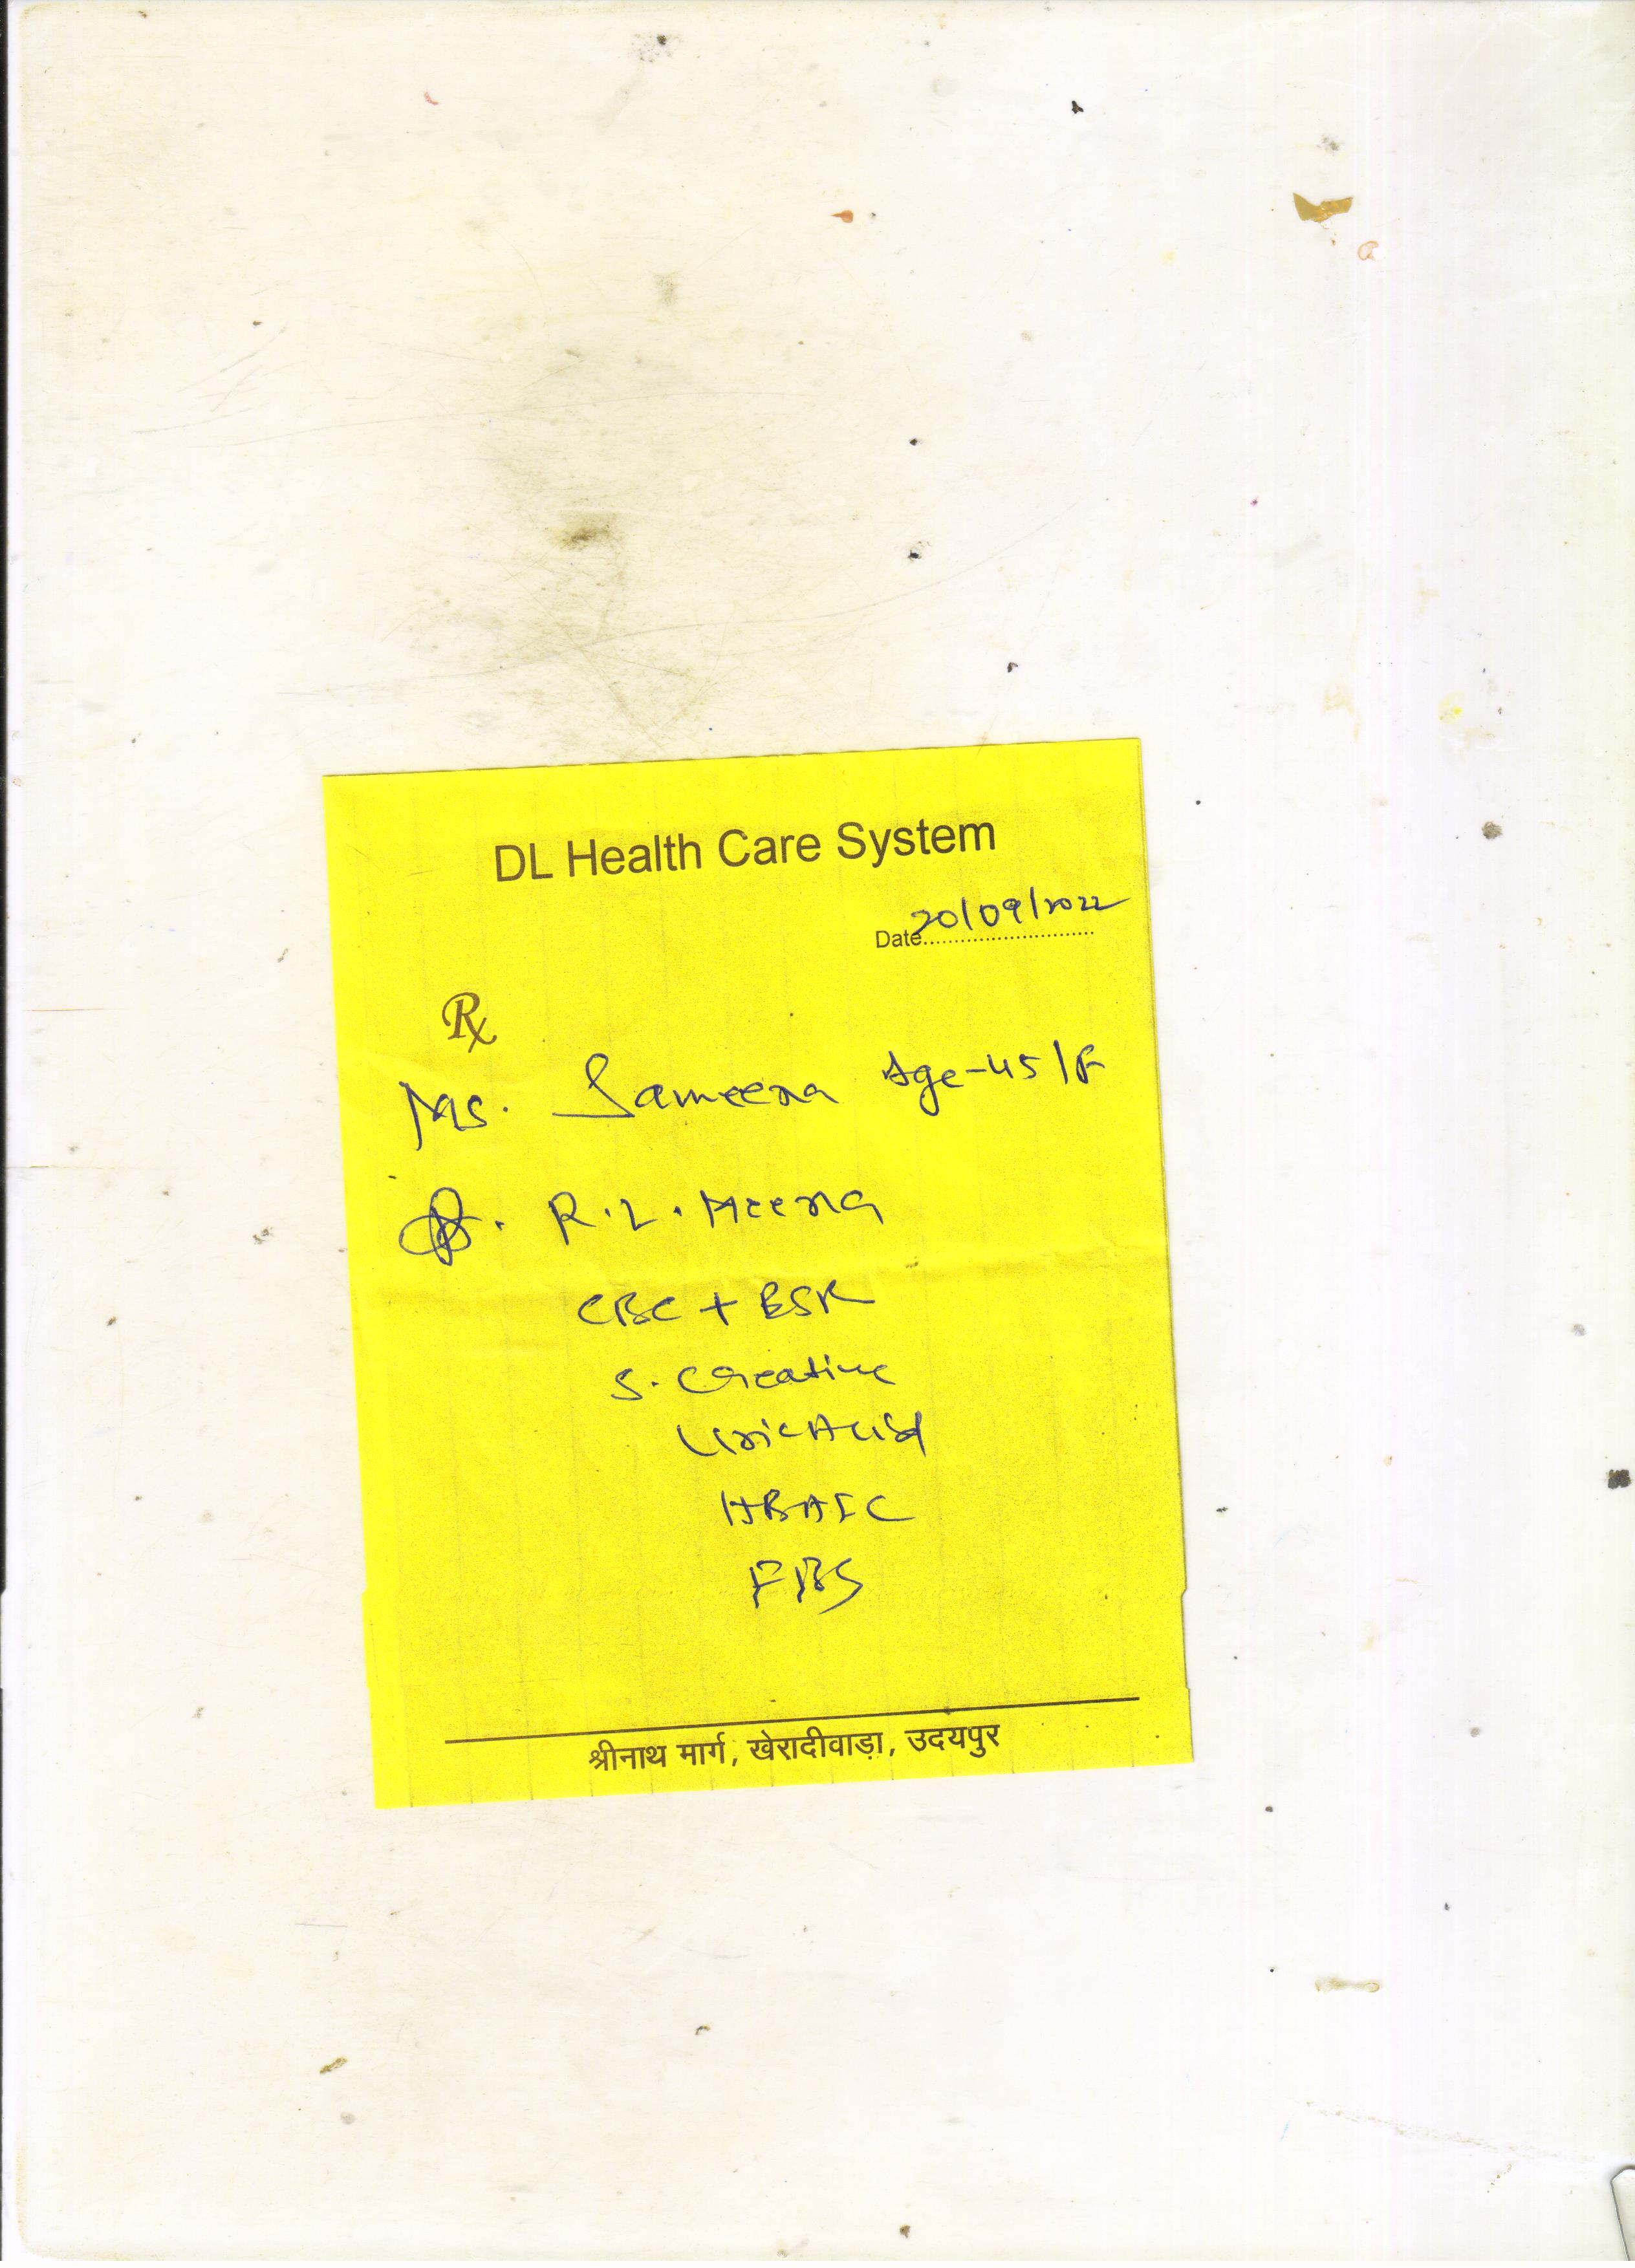 DL Health Care System
Date 20/09/2022
Rx
Ms. Sameena Age-45/F
Dr. R.L. Meena
CBC + ESR
S. Creatine
Uric Acid
HBA1C
FBS
श्रीनाथ मार्ग, खेरादीवाड़ा, उदयपुर